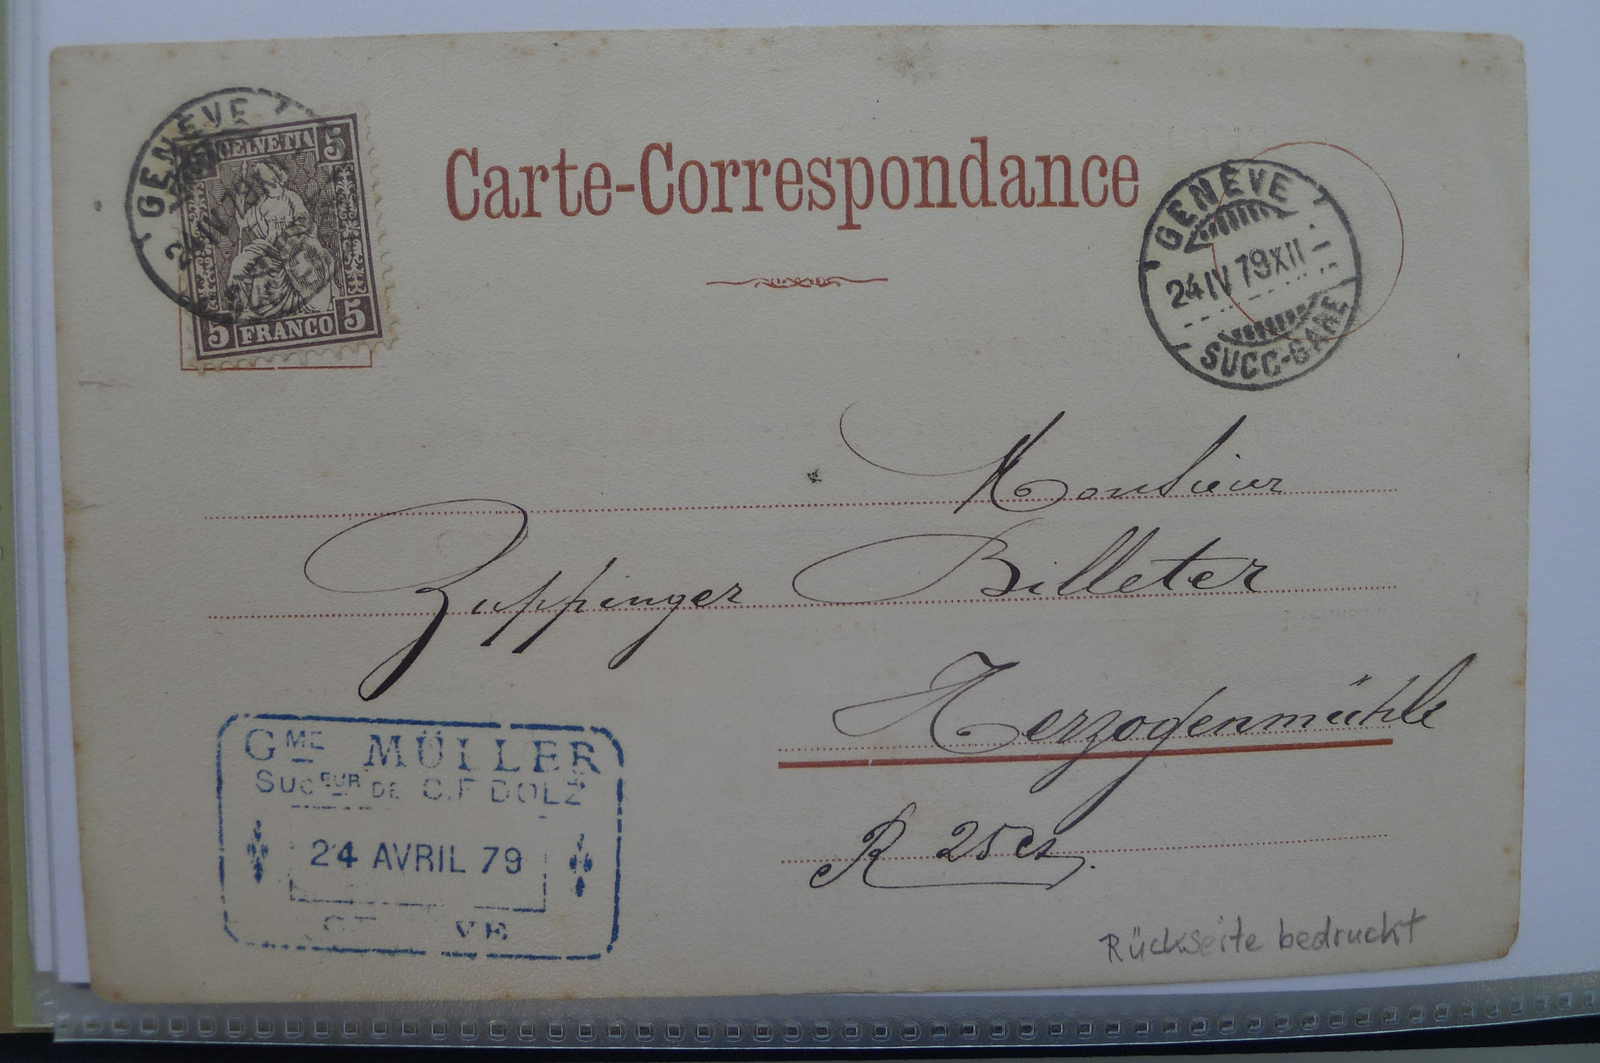 Carte-Correspondance
GENÈVE
24 IV 79
HELVETIA
5 5
5 FRANCO 5
GENÈVE
24 IV 79 XII
SUCC-GARE
Monsieur
Zuppinger Billeter
Herzogenmühle
R 25 cs.
GME MÜLLER
SUCEUR DE C.F DOLZ
24 AVRIL 79
GE VE
Rückseite bedruckt